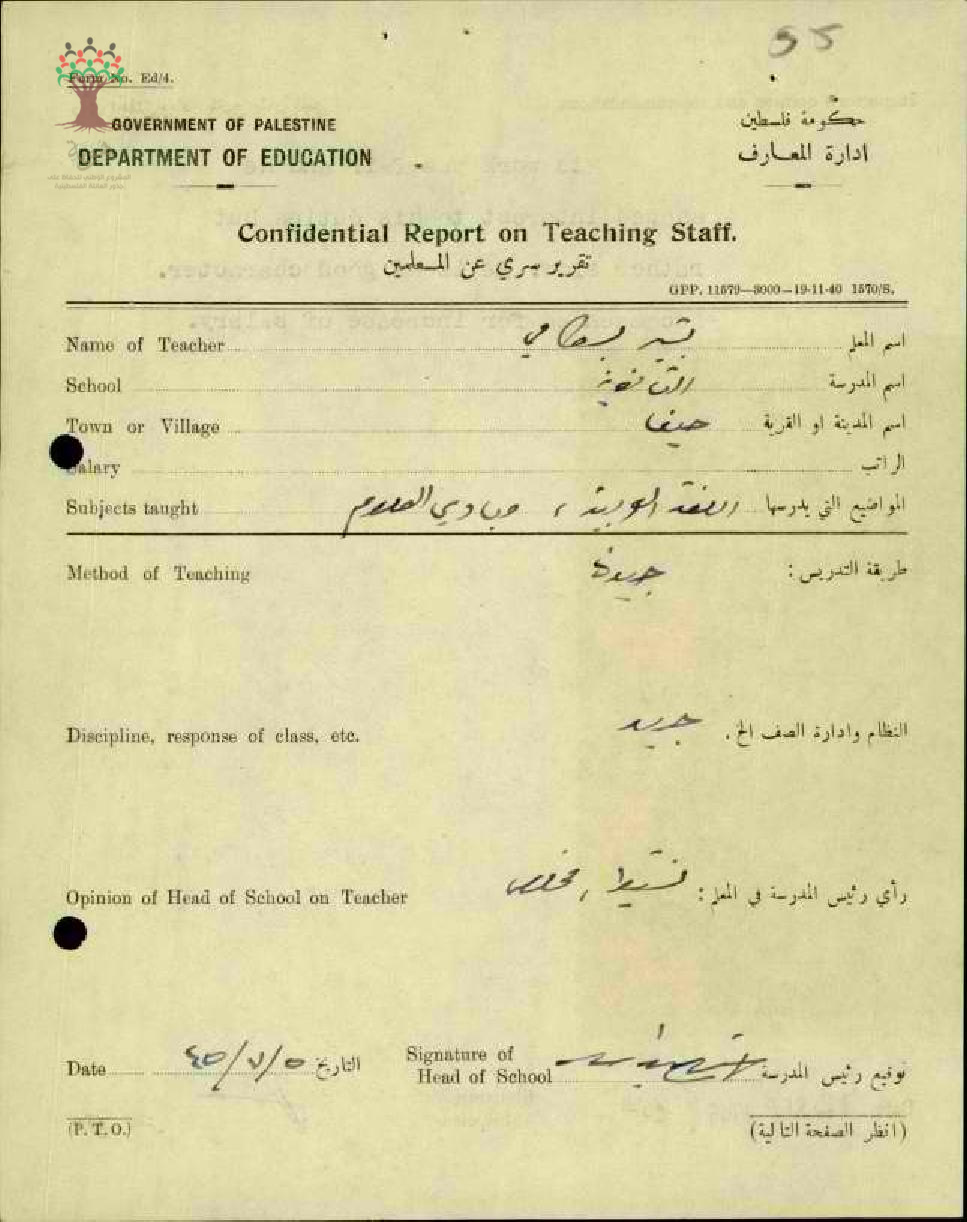 55
Form No. Ed/4.
GOVERNMENT OF PALESTINE
حكومة فلسطين
DEPARTMENT OF EDUCATION
ادارة المعارف
Confidential Report on Teaching Staff.
تقرير سري عن المعلمين
GPP. 11579—3000—19-11-40 1570/S.
Name of Teacher
اسم المعلم
School الثانوية اسم المدرسة
Town or Village حيفا اسم المدينة او القرية
Salary الراتب
Subjects taught اللغة العربية ، مبادئ العلوم المواضيع التي يدرسها
Method of Teaching جيدة طريقة التدريس :
Discipline, response of class, etc. جيد النظام وادارة الصف الخ .
Opinion of Head of School on Teacher نشيط , مخلص رأي رئيس المدرسة في المعلم :
Date ٤٥/٧/٥ التاريخ Signature of Head of School توقيع رئيس المدرسة
(P. T. O.) (انظر الصفحة التالية)